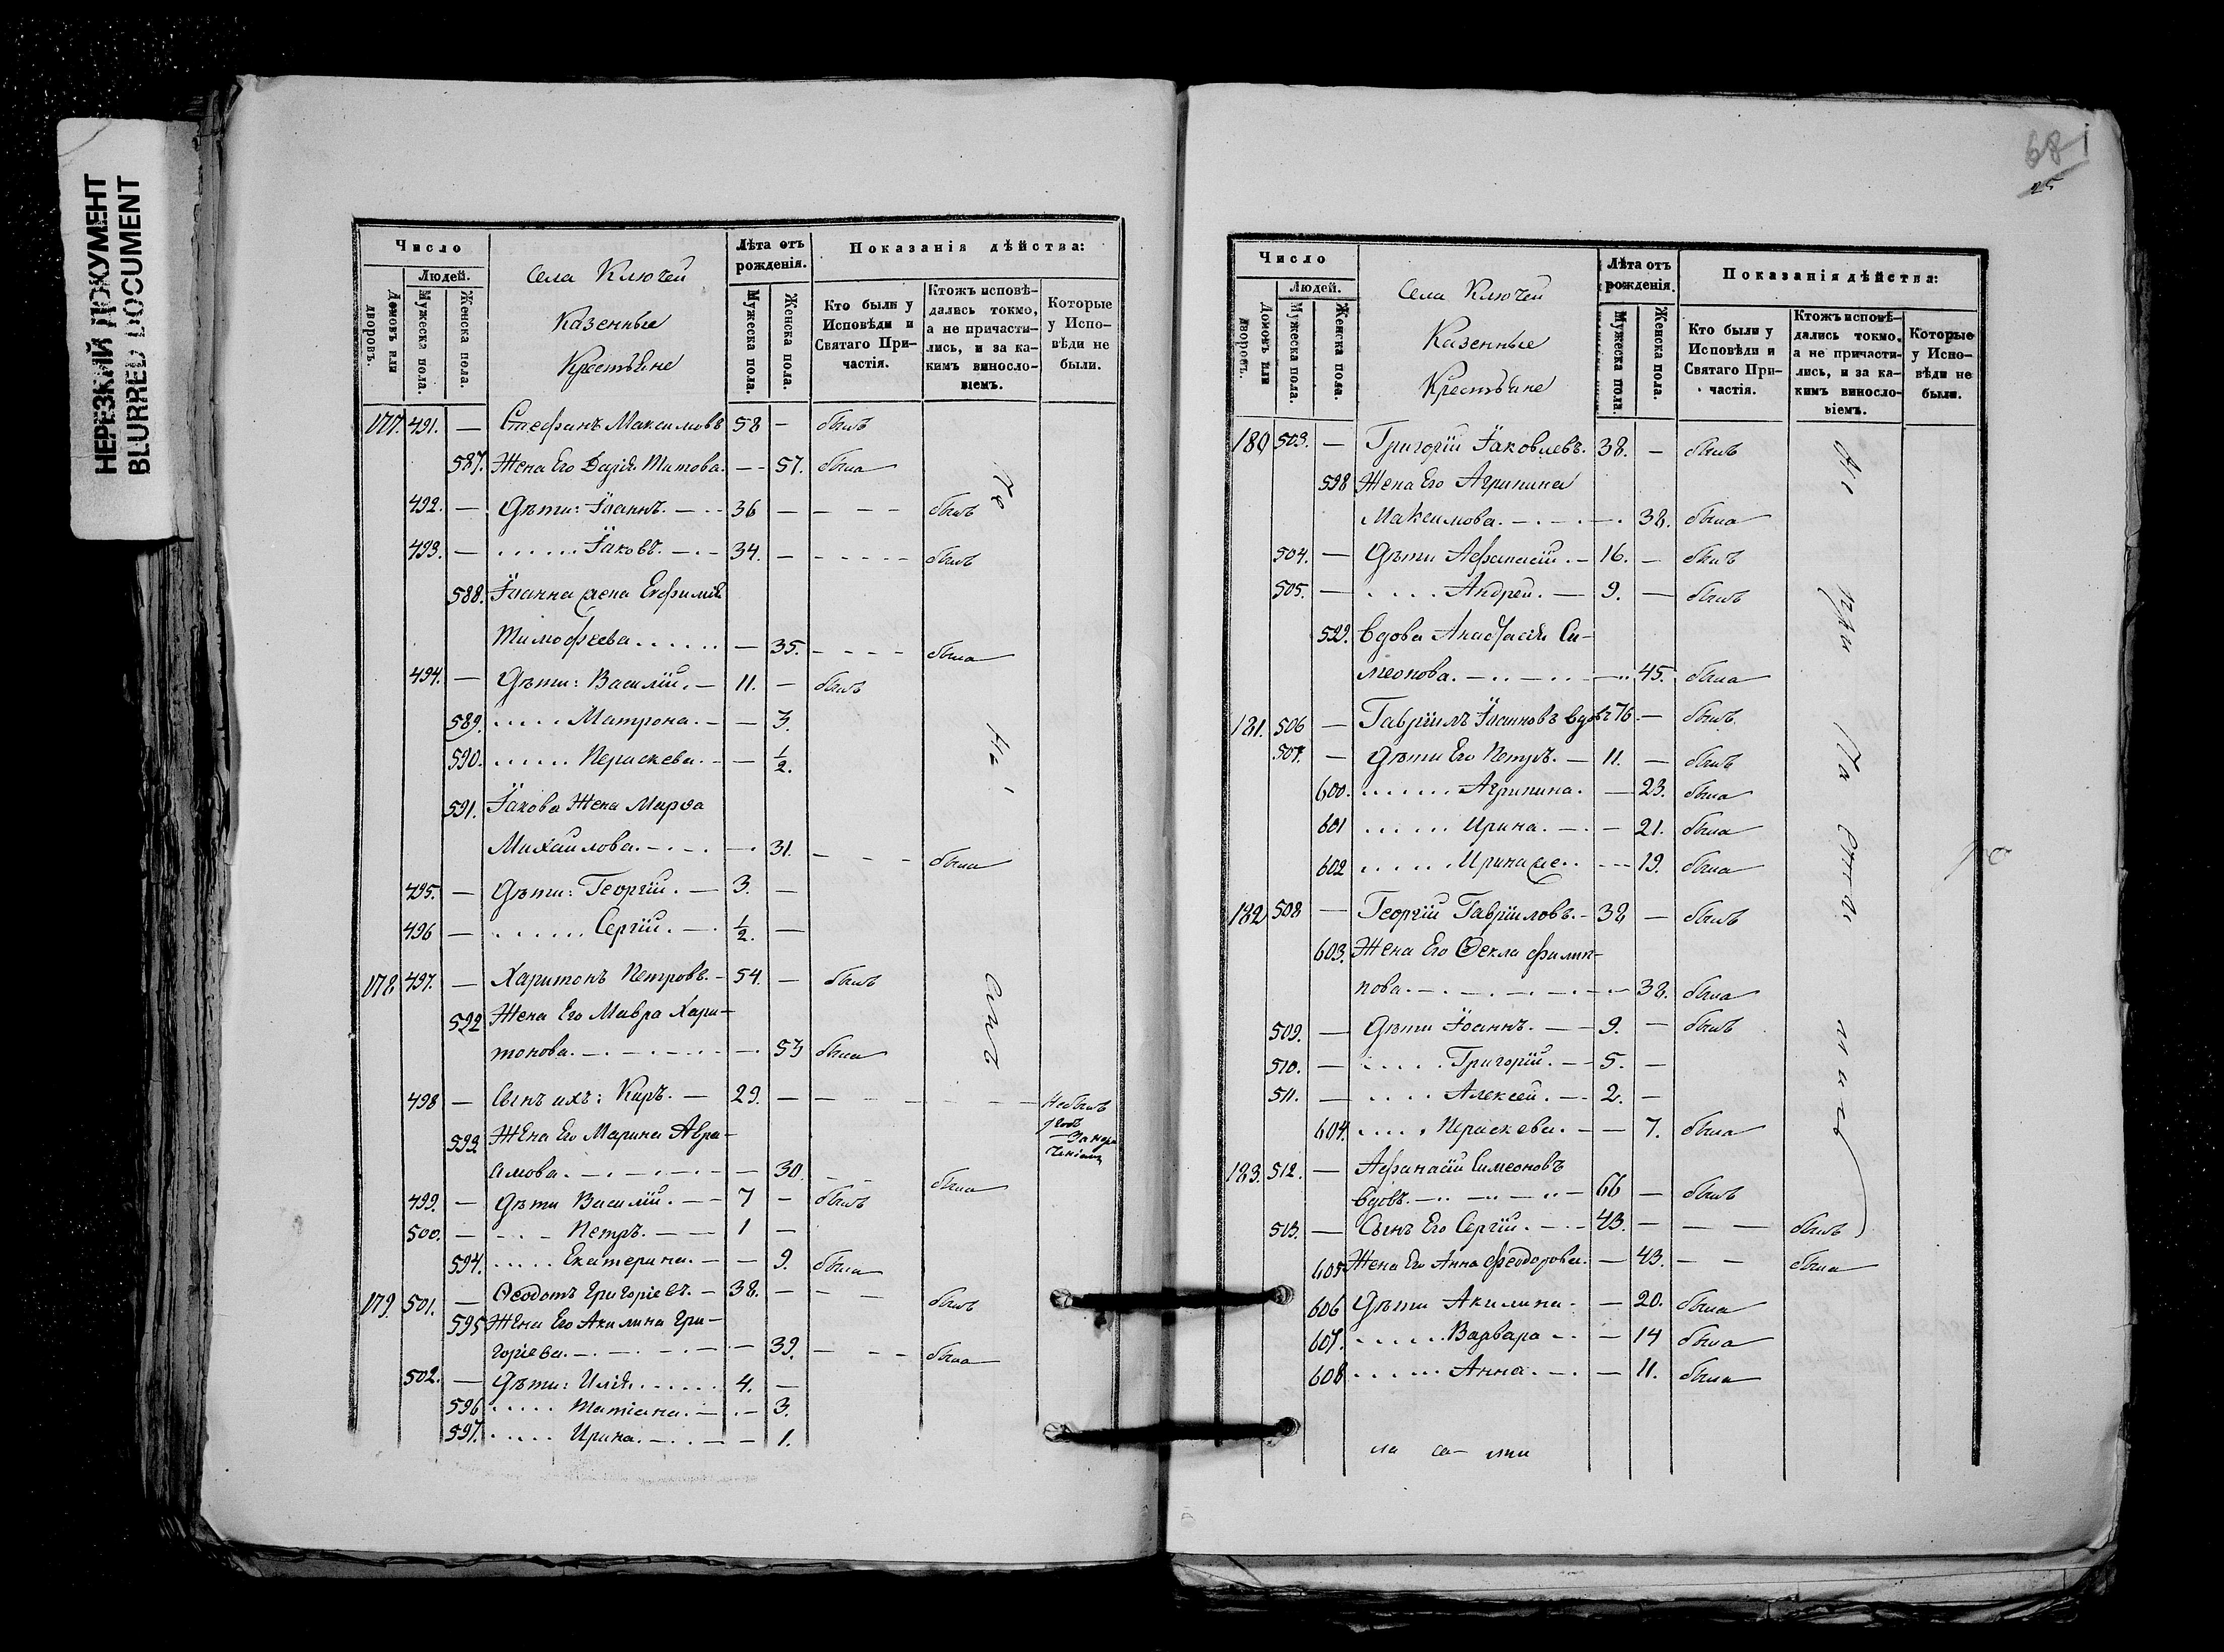 НЕРЕЗКИЙ ДОКУМЕНТ
BLURRED DOCUMENT
Число
Людей.
Домовъ или дворовъ.
Мужеска пола.
Женска пола.
Села Ключей
Казенные
Крестьяне
Лѣта отъ рожденія.
Мужеска пола.
Женска пола.
Показанія дѣйства:
Кто были у Исповѣди и Святаго Причастія.
Ктожъ исповѣдались токмо, а не причастились, и за какимъ винословіемъ.
Которые у Исповѣди не были.
177. 491. — Стефанъ Максимовъ 58 — былъ
587. Жена Его Дарія Титова. — 57. была
492. — Дѣти: Іоаннъ. — 36 — — — — былъ
493. — ...... Іаковъ. — 34. — — — — былъ
588. Іоанна жена Евфимія
Тимофеева...... — 35. — — — — была
494. — Дѣти: Василій. — 11. — былъ
589. ..... Матрона. — — 3.
590. ...... Параскева. — — ½.
591. Іакова Жена Марѳа
Михайлова. — — 31. — — — была
495. — Дѣти: Георгій. — 3. —
496 — ....... Сергій. — ½. —
178 497. — Харитонъ Петровъ. — 54. — былъ
592 Жена Его Мавра Хари-
тонова. — — 53 была
498 — Сынъ ихъ: Киръ. — 29. — — — — Небылъ
593 Жена Его Марина Авра-
амова. — — 30. — — была
499. — Дѣти Василій. — 7 — былъ
500. — — Петръ. — 1 —
594. ..... Екатерина. — — 9. была
179. 501. — Ѳеодотъ Григоріевъ. — 38. — — — былъ
595 Жена Его Акилина Гри-
горіева. — — 39. — — — была
502. — Дѣти: Илія...... 4. —
596 ..... Татіана. — — 3.
597. ..... Ирина. — — 1.
По
Не
68
25
Число
Людей.
Домовъ или дворовъ.
Мужеска пола.
Женска пола.
Села Ключей
Казенные
Крестьяне
Лѣта отъ рожденія.
Мужеска пола.
Женска пола.
Показанія дѣйства:
Кто были у Исповѣди и Святаго Причастія.
Ктожъ исповѣдались токмо, а не причастились, и за какимъ винословіемъ.
Которые у Исповѣди не были.
180 503. — Григорій Іаковлевъ. 38. — былъ
598 Жена Его Агрипина
Максимова. — — 38. была
504. — Дѣти Афанасій. — 16. — былъ
505. — .... Андрей. — 9. — былъ
599. вдова Анастасія Си-
меонова. — — 45. была
181. 506 — Гавріилъ Іоанновъ вдовъ 76 — былъ
507. — Дѣти Его Петръ. — 11. — былъ
600. ....... Агрипина. — 23. была
601 ...... Ирина. — — 21. была
602 ...... Ирина же.. — 19. была
182 508 — Георгій Гавріиловъ. — 38 — былъ
603. Жена Его Ѳекла Филип-
пова. — — 38. была
509. — Дѣти Іоаннъ. — 9. — былъ
510. — ..... Григорій. — 5. —
511. — .... Алексей. — 2. —
604. .... Параскева. — — 7. была
183. 512. — Афанасій Симеоновъ
вдовъ. — 66 — былъ
513. — Сынъ Его Сергій. — 43. — — — былъ
605 Жена Его Анна Феодорова. — 43. — — была
606 Дѣти Акилина. — 20. была
607. ..... Варвара — — 14 была
608 ...... Анна. — — 11. была
Не
При